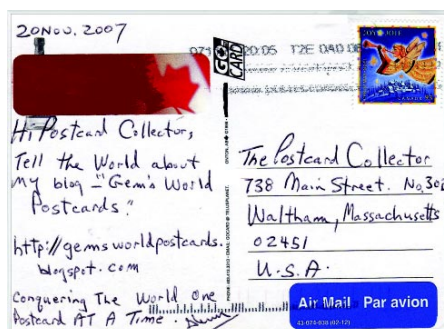 20 NOV. 2007
Hi Postcard Collector,
Tell the World about
my blog - "Gem's World
Postcards."
http://gemsworldpostcards.
blogspot.com
Conquering The World One
Postcard AT A Time.
GO
CARD
20:05 T2E 0A0
JOY JOIE
The Postcard Collector
738 Main Street. No. 302
Waltham, Massachusetts
02451
U.S.A.
Air Mail Par avion